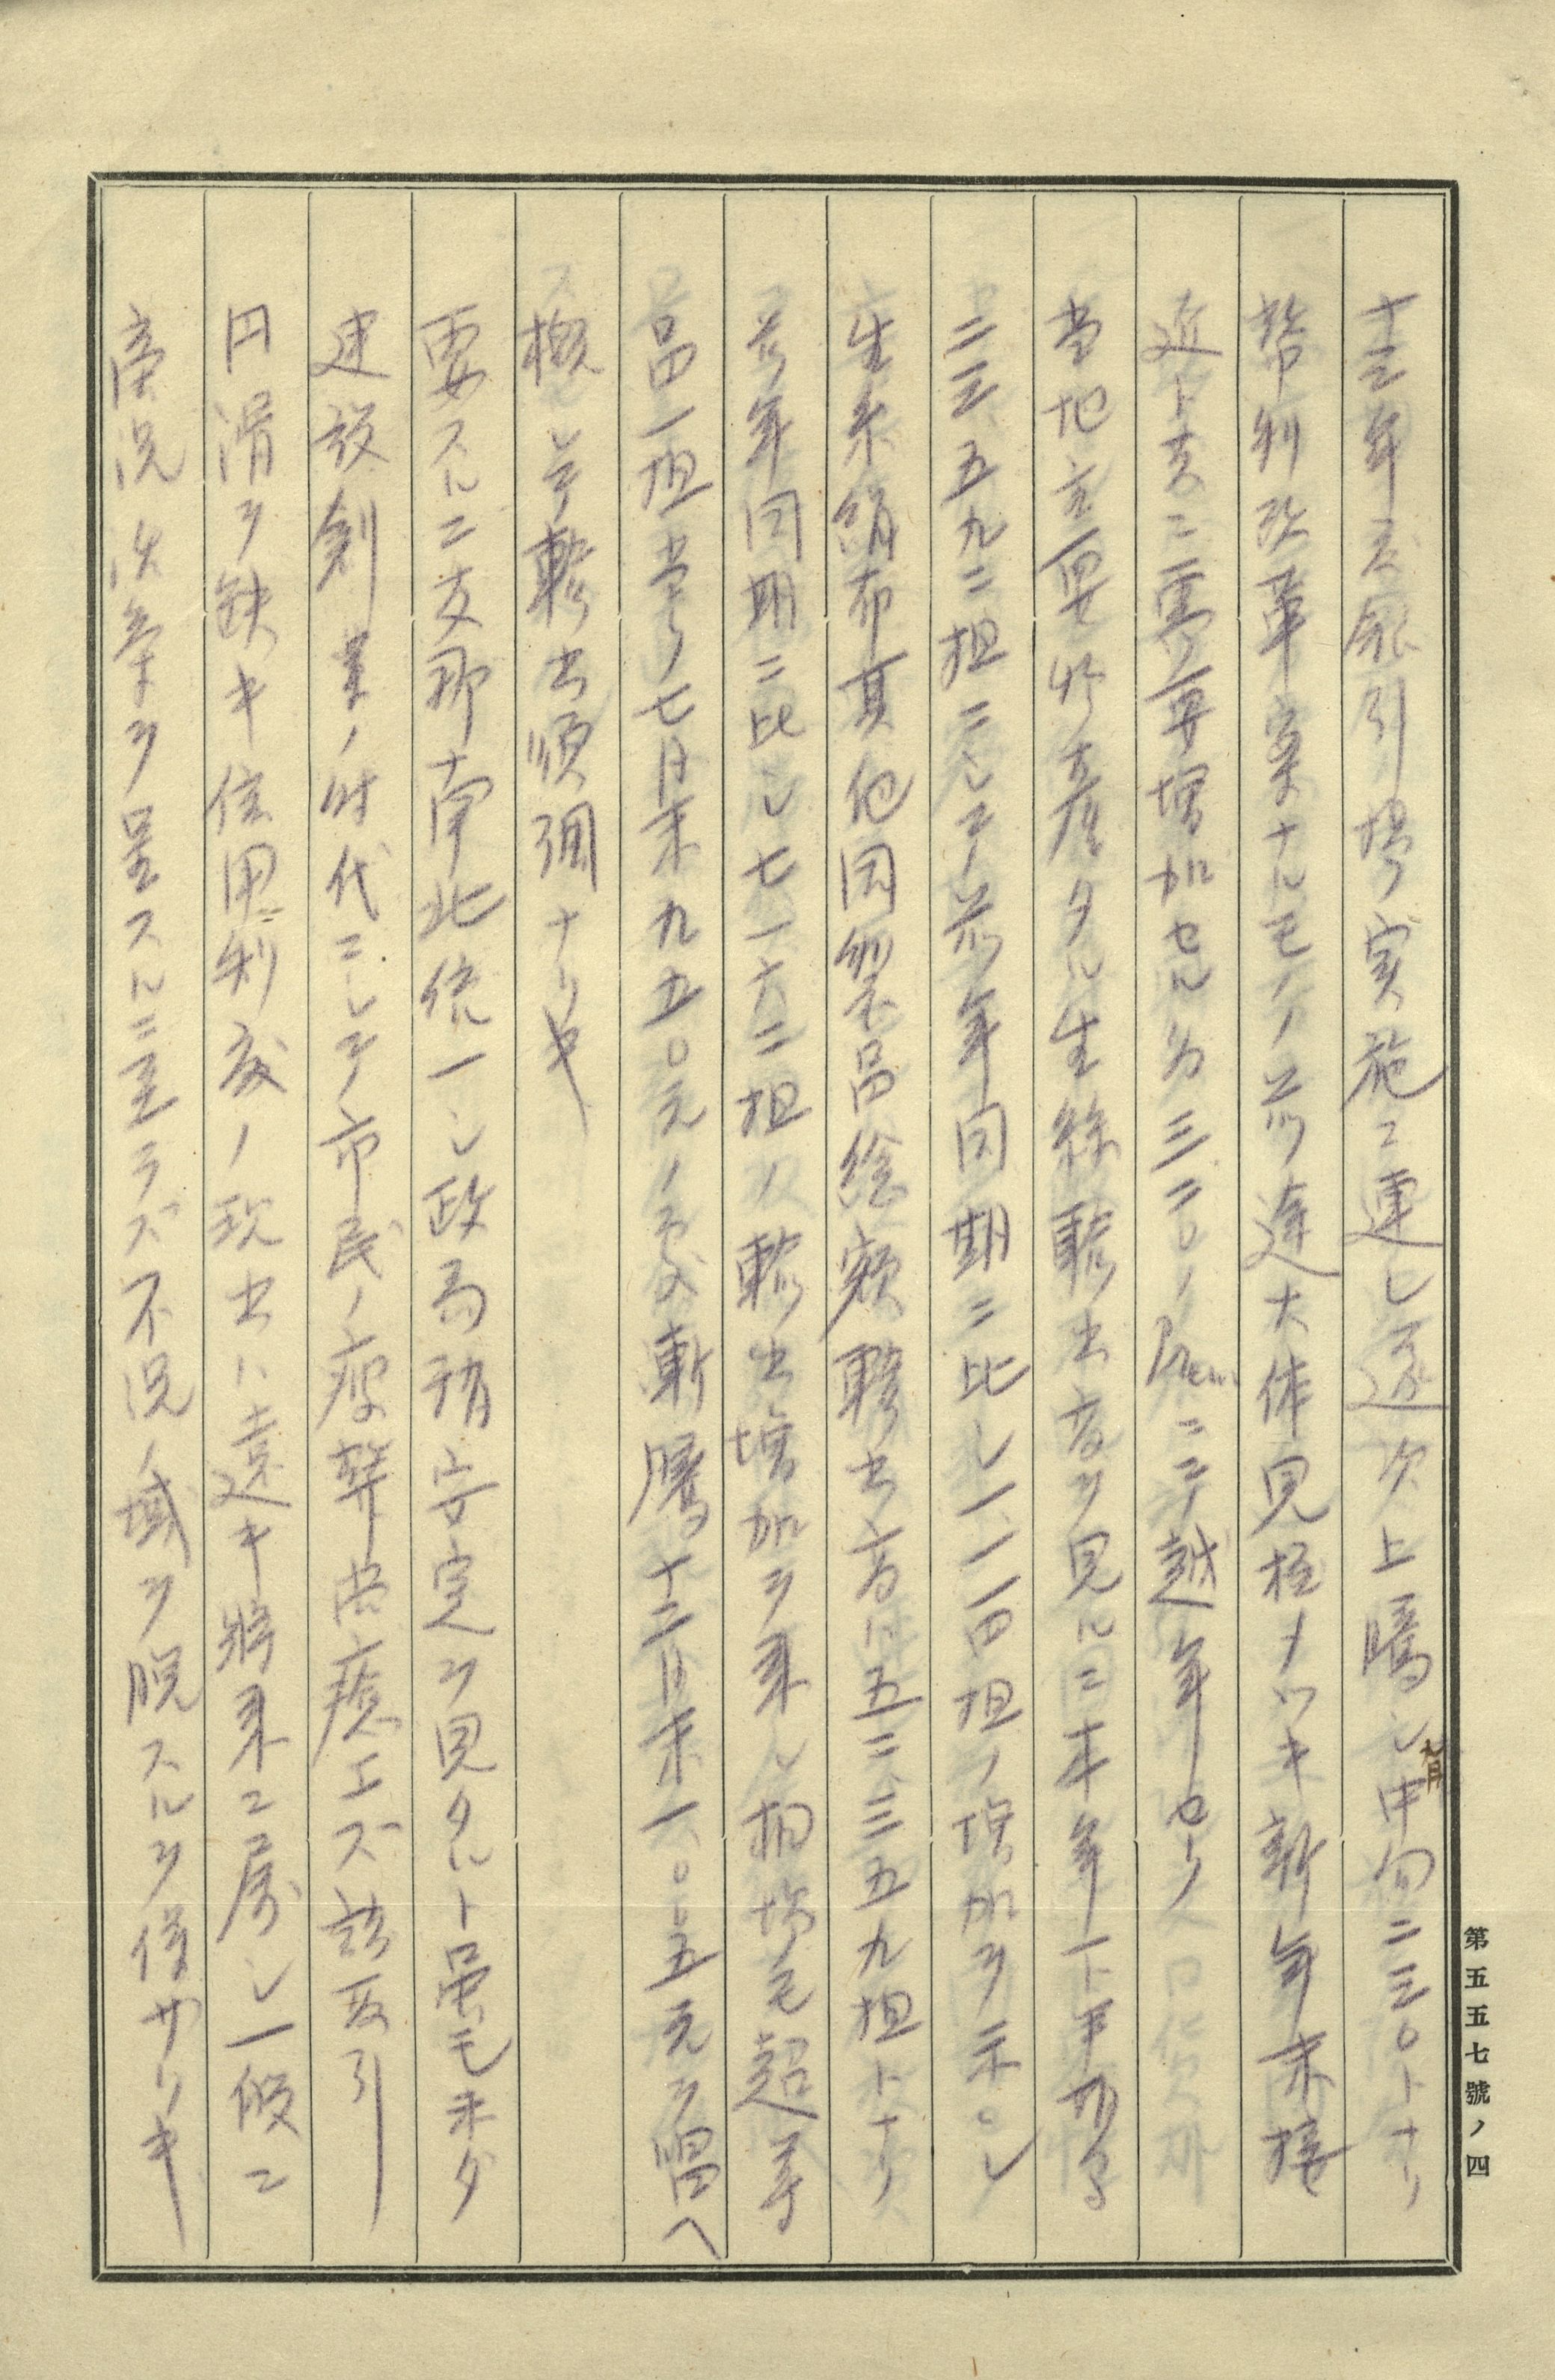 十三年ハ銀引揚ノ実施ニ連レ逐次上騰シ九月中旬二三〇トナリ
幣制改革案ナルモノノ前途大体見極メツキ新年末接
近ト共ニ需要増加セル為三三〇ノPrem.ニテ越年セリ
当地主要物産タル生絲輸出高ヲ見ルニ本年下半期ハ
二三、五九二担ニシテ前年同期ニ比シ一、一一四担ノ増加ヲ示シ
生糸絹布其他同製品総額輸出高ハ五二、三五九担トナリ
前年同期ニ比シ七一六二担ノ輸出増加ヲ来シ相場モ超等
品一担当リ七月末九五〇元ノ処漸騰十二月末一〇五元ヲ唱ヘ
概シテ輸出順調ナリキ
要スルニ支那南北統一シ政局稍安定ヲ見タルト雖モ未ダ
建設創業ノ時代ニシテ市民ノ疲弊尚癒エズ諸取引
円滑ヲ缺キ信用制度ノ現出ハ遠キ將来ニ属シ一般ニ
商況活気ヲ呈スルニ至ラズ不況ノ域ヲ脱スルヲ得サリキ
第五五七號ノ四